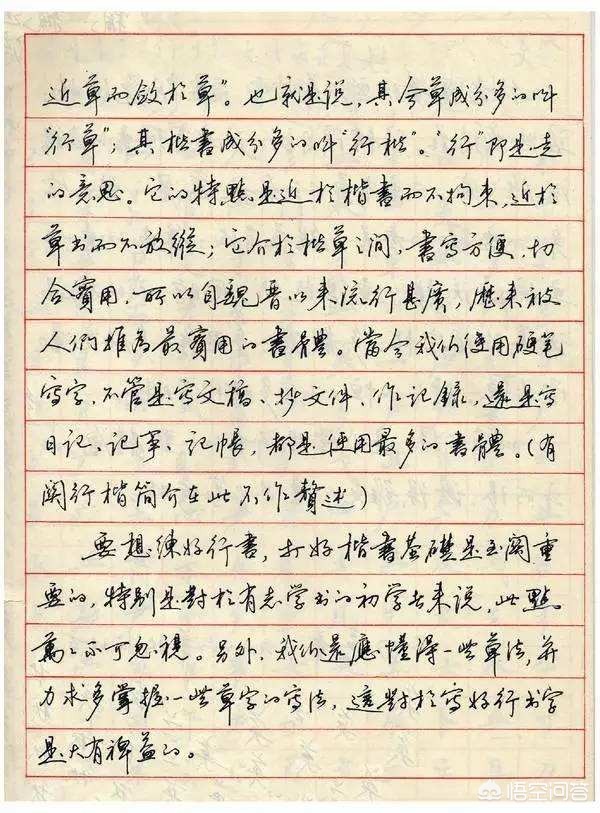 近草而斂於草”。也就是说,其今草成分多的叫
“行草”;其楷書成分多的叫“行楷”。“行”即是走
的意思。它的特點是近於楷書而不拘束,近於
草书而不放縱;它介於楷草之间,書写方便,切
合實用,所以自魏晋以来流行甚廣,歷来被
人們推為最實用的書體。當今我们使用硬笔
写字,不管是写文稿、抄文件、作記錄,還是写
日记、记事、记帳,都是使用最多的書體。(有
関行楷简介在此不作贅述)
要想練好行書,打好楷書基礎是至関重
要的,特别是對於有志学书的初学者来说,此點
萬萬不可忽視。另外,我们還應懂得一些草法,并
力求多掌握一些草字的写法,這對於写好行书字
是大有裨益的。
悟空问答